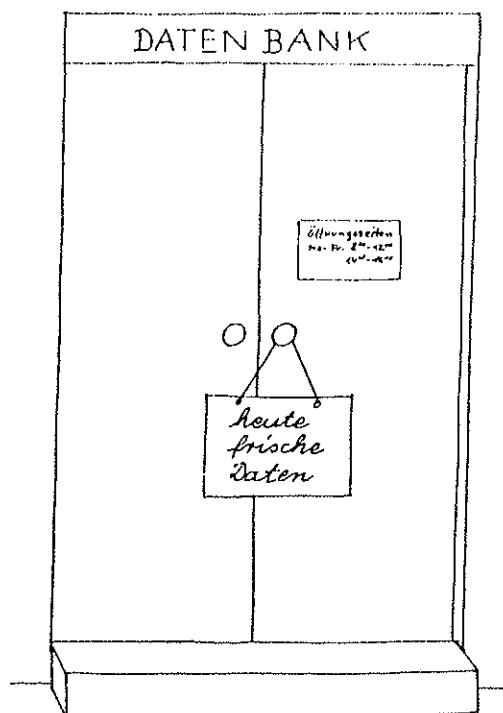 DATEN BANK
Öffnungszeiten
Mo-Fr. 8⁰⁰-12⁰⁰
heute
frische
Daten